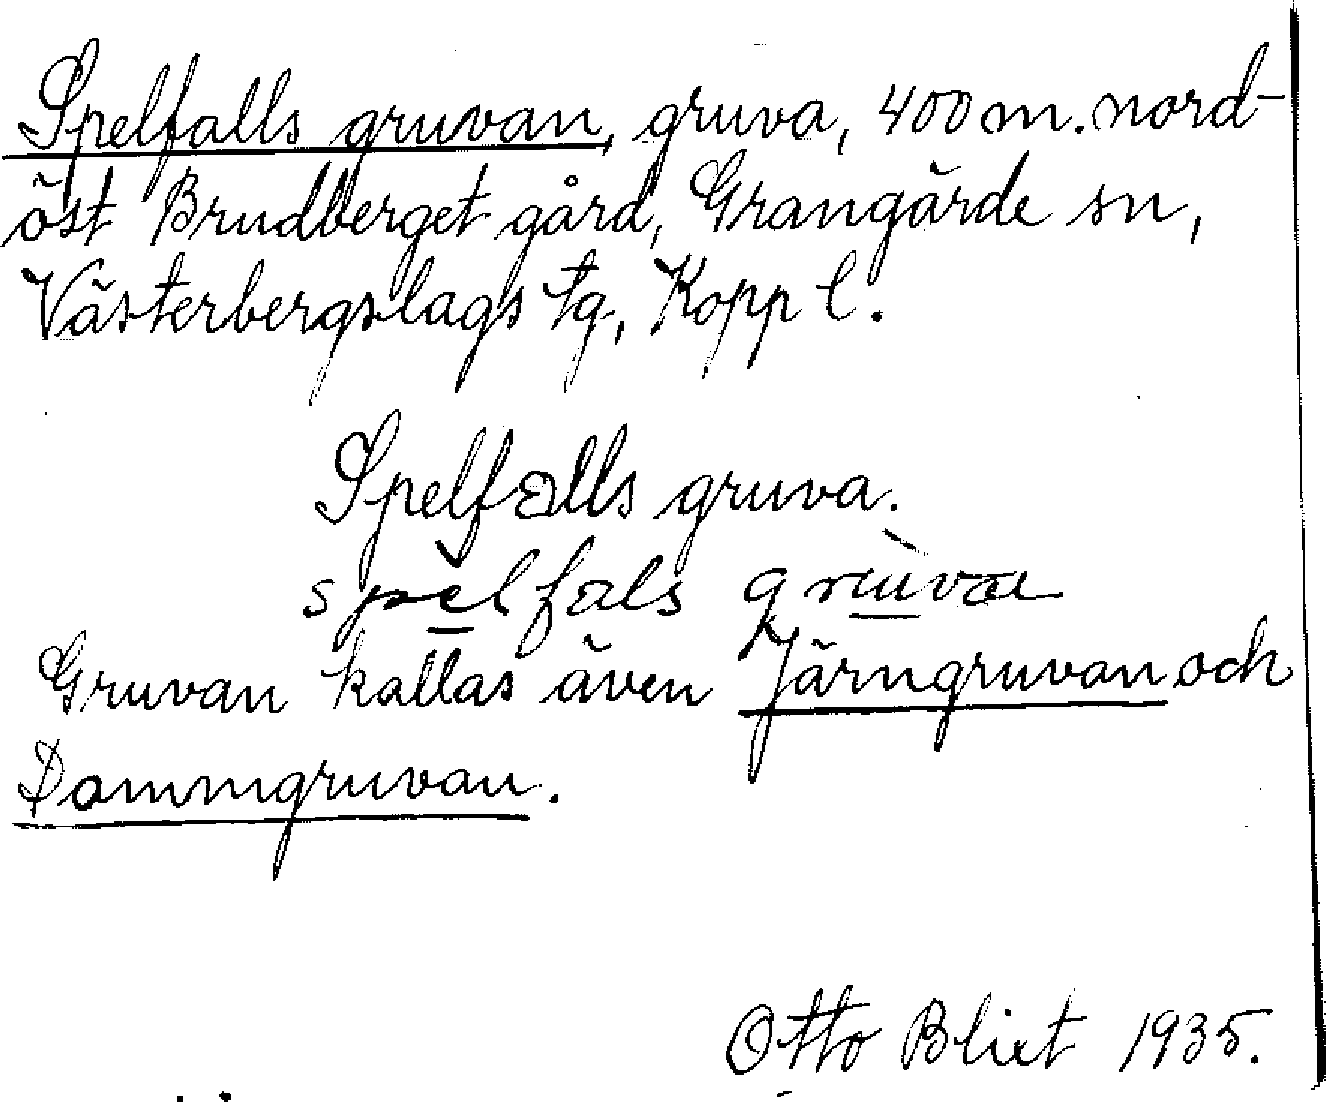 Spelfalls gruvan, gruva, 400 m. nord-
öst Brudberget gård, Grangärde sn,
Västerbergslags tg, Kopp l.
Spelfalls gruva.
spelfals gruva
Gruvan kallas även Järngruvan och
Dammgruvan.
Otto Blixt 1935.